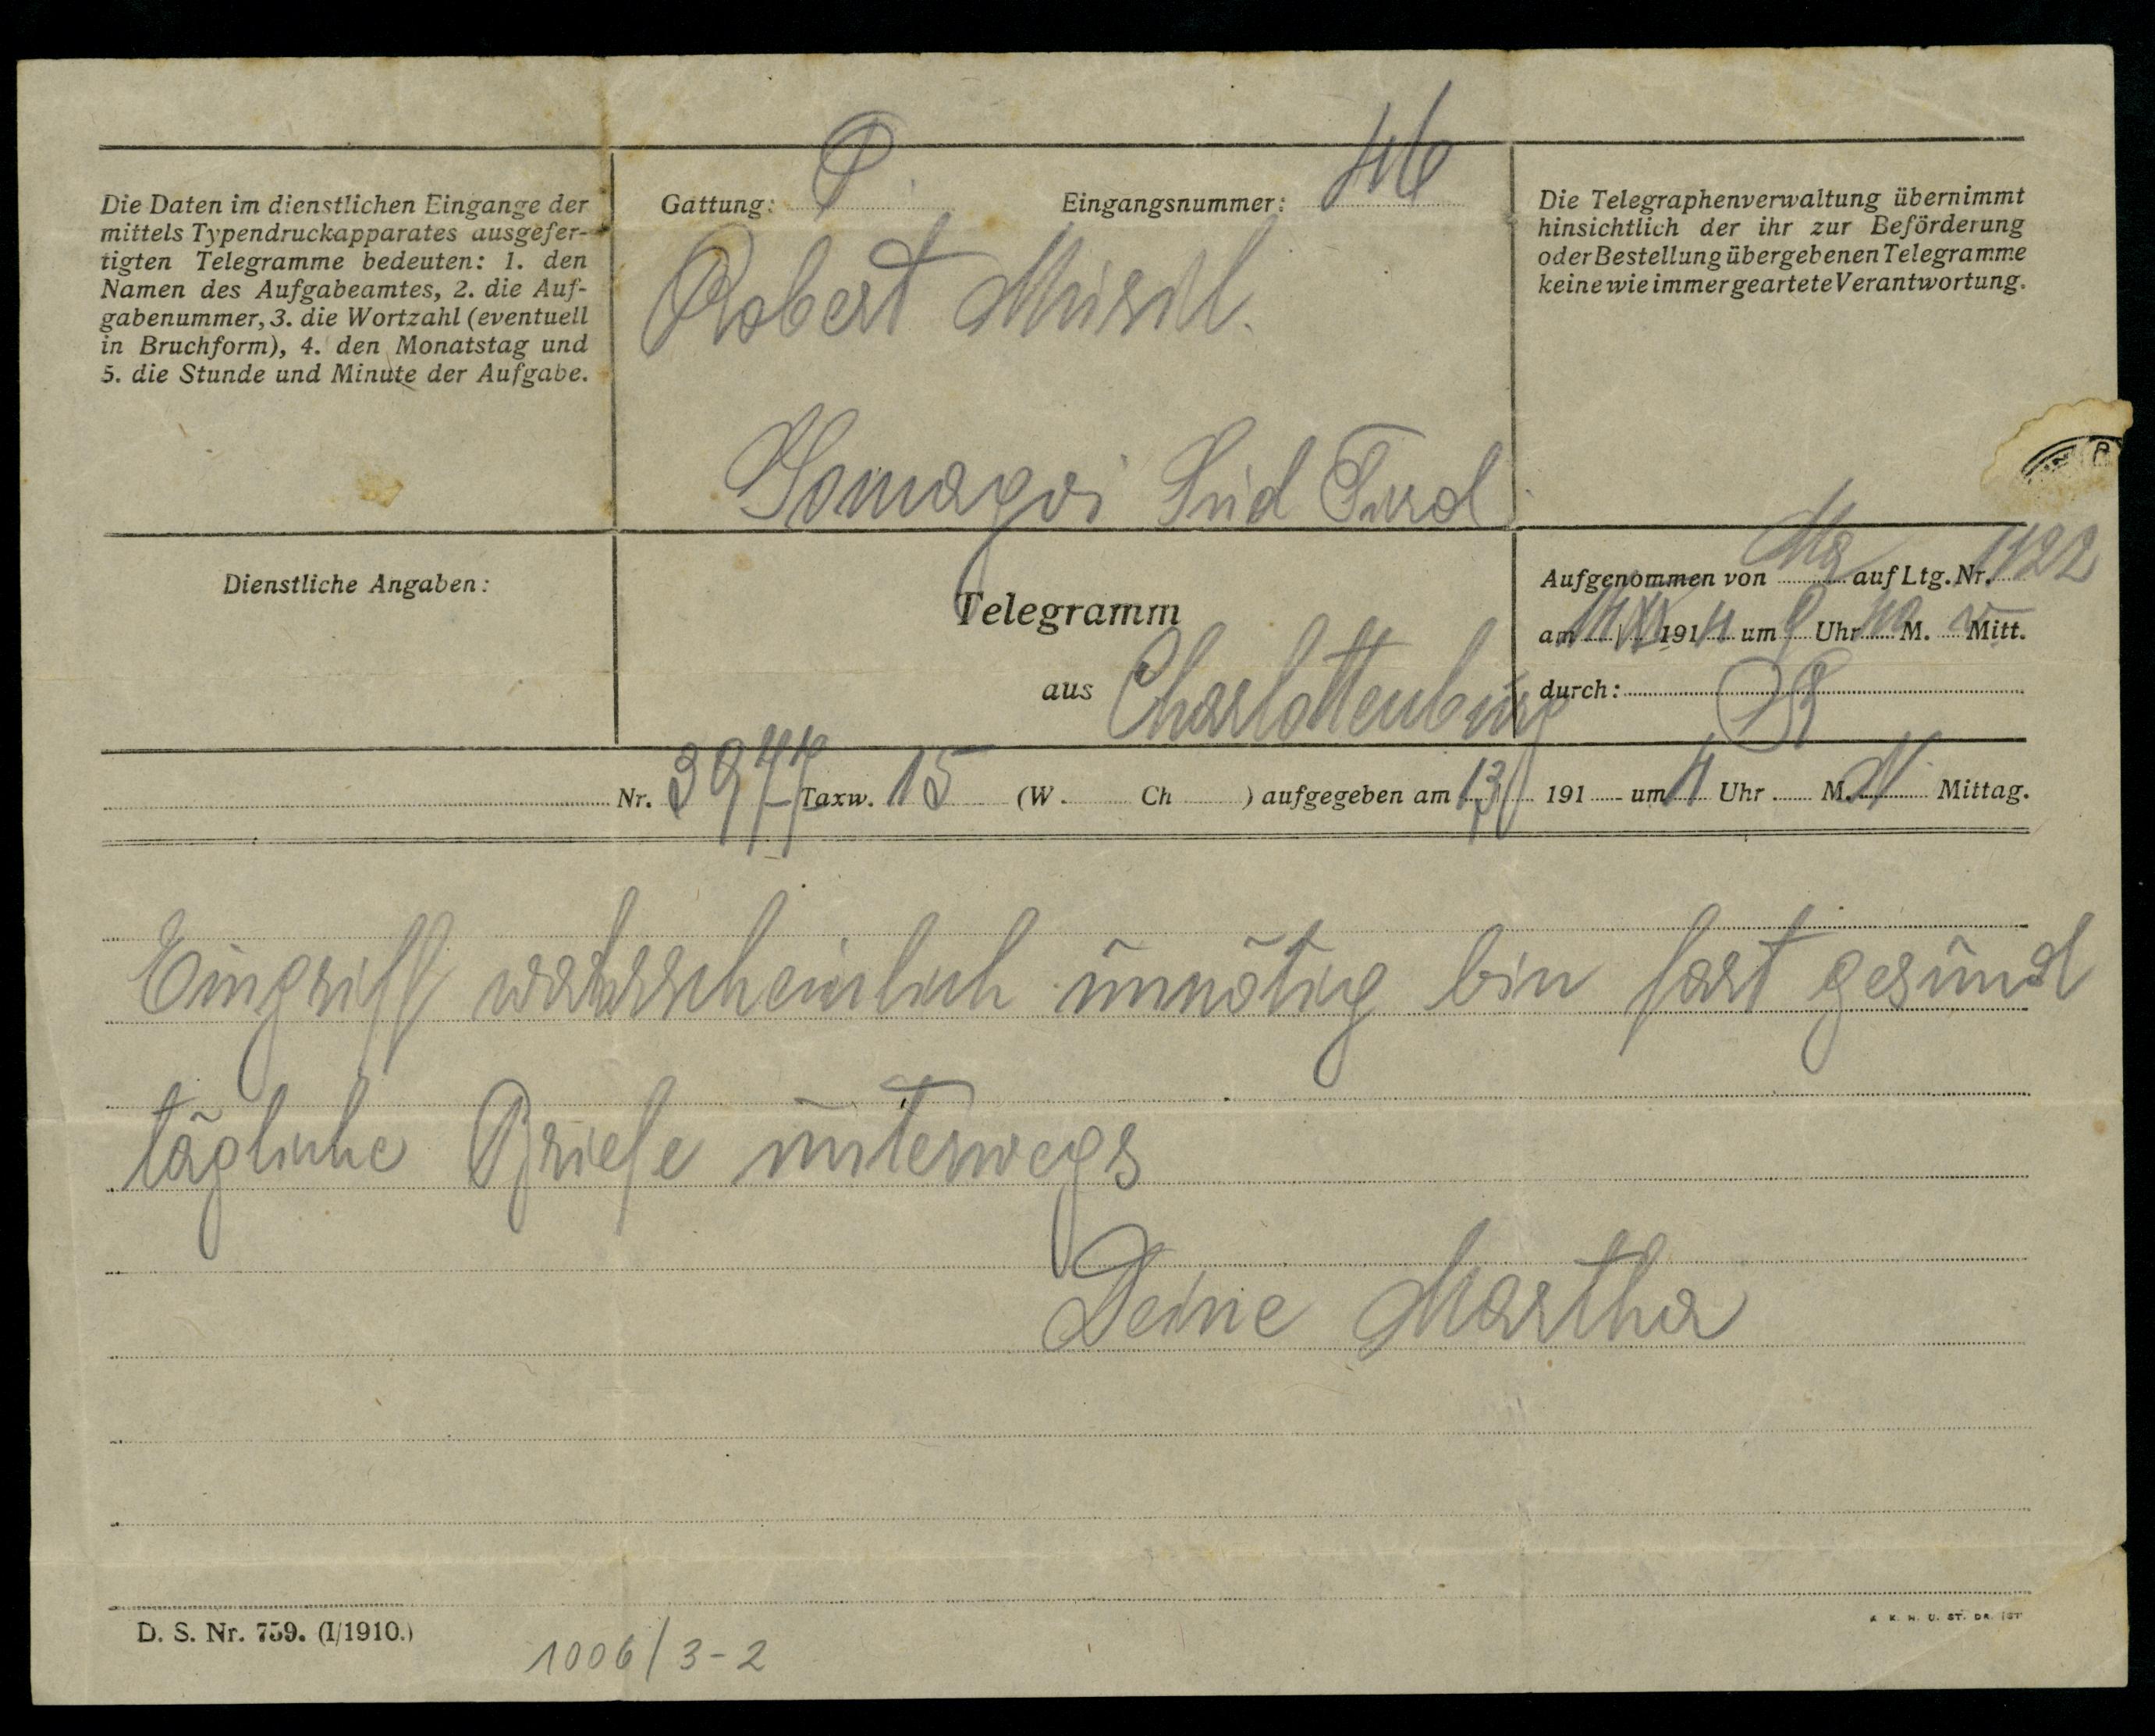 Die Daten im dienstlichen Eingange der
mittels Typendruckapparates ausgefer-
tigten Telegramme bedeuten: 1. den
Namen des Aufgabeamtes, 2. die Auf-
gabenummer, 3. die Wortzahl (eventuell
in Bruchform), 4. den Monatstag und
5. die Stunde und Minute der Aufgabe.
Gattung:
Eingangsnummer: 46
Robert Musil.
Gomagoi Süd Tirol
Die Telegraphenverwaltung übernimmt
hinsichtlich der ihr zur Beförderung
oder Bestellung übergebenen Telegramme
keine wie immer geartete Verantwortung.
Dienstliche Angaben:
Telegramm
aus Charlottenburg
Aufgenommen von auf Ltg. Nr. 1122
am 191 um 9 Uhr M. Mitt.
durch:
Nr. 3977 Taxw. 15 (W. Ch ) aufgegeben am 13/ 191 um Uhr M. N Mittag.
Eingriff wahrscheinlich unnötig bin fast gesund
tägliche Briefe unterwegs
Deine Martha
D. S. Nr. 759. (I/1910.)
1006/3-2